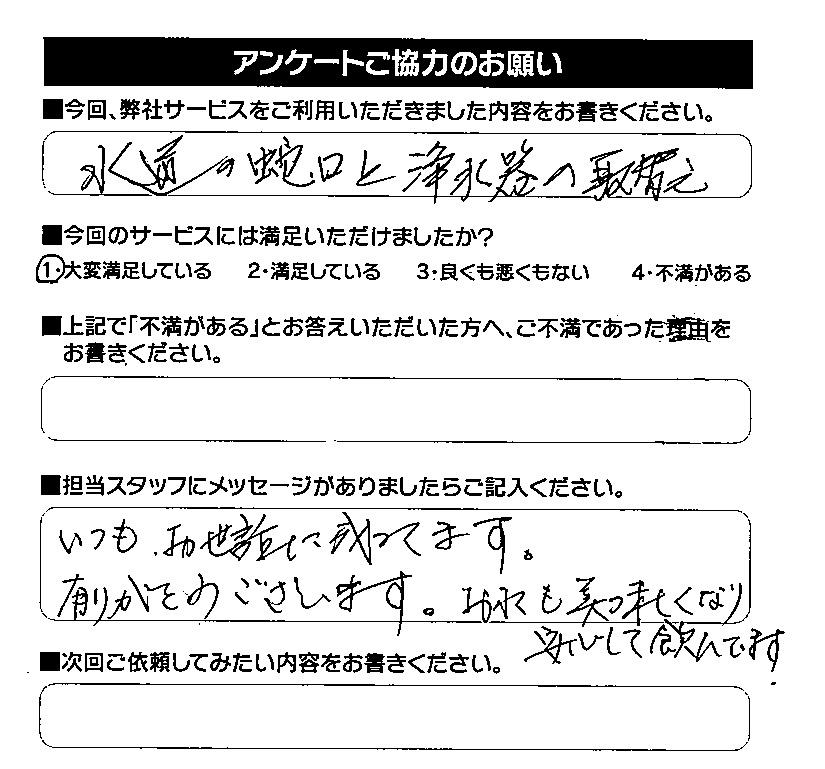 アンケートご協力のお願い
■今回、弊社サービスをご利用いただきました内容をお書きください。
水道の蛇口と浄水器の取替え
■今回のサービスには満足いただけましたか?
1・大変満足している 2・満足している 3・良くも悪くもない 4・不満がある
■上記で「不満がある」とお答えいただいた方へ、ご不満であった理由を
お書きください。
■担当スタッフにメッセージがありましたらご記入ください。
いつもお世話になってます。
有りがとうございます。お水も美味しくなり
安心して飲んでます
■次回ご依頼してみたい内容をお書きください。